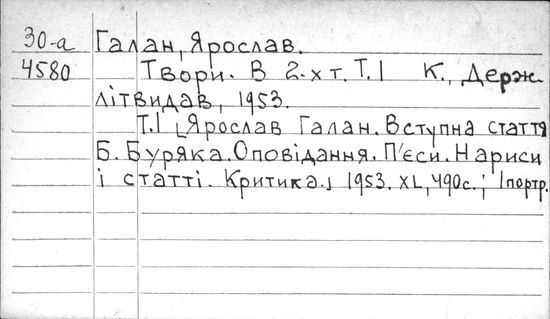 30-а Галан, Ярослав.
4580 Твори. В 2-х т. Т. I К., Держ-
літвидав, 1953.
Т. I [Ярослав Галан. Вступна стаття
Б. Буряка. Оповідання. П'єси. Нариси
і статті. Критика.] 1953. XL, 490 с.; 1 портр.